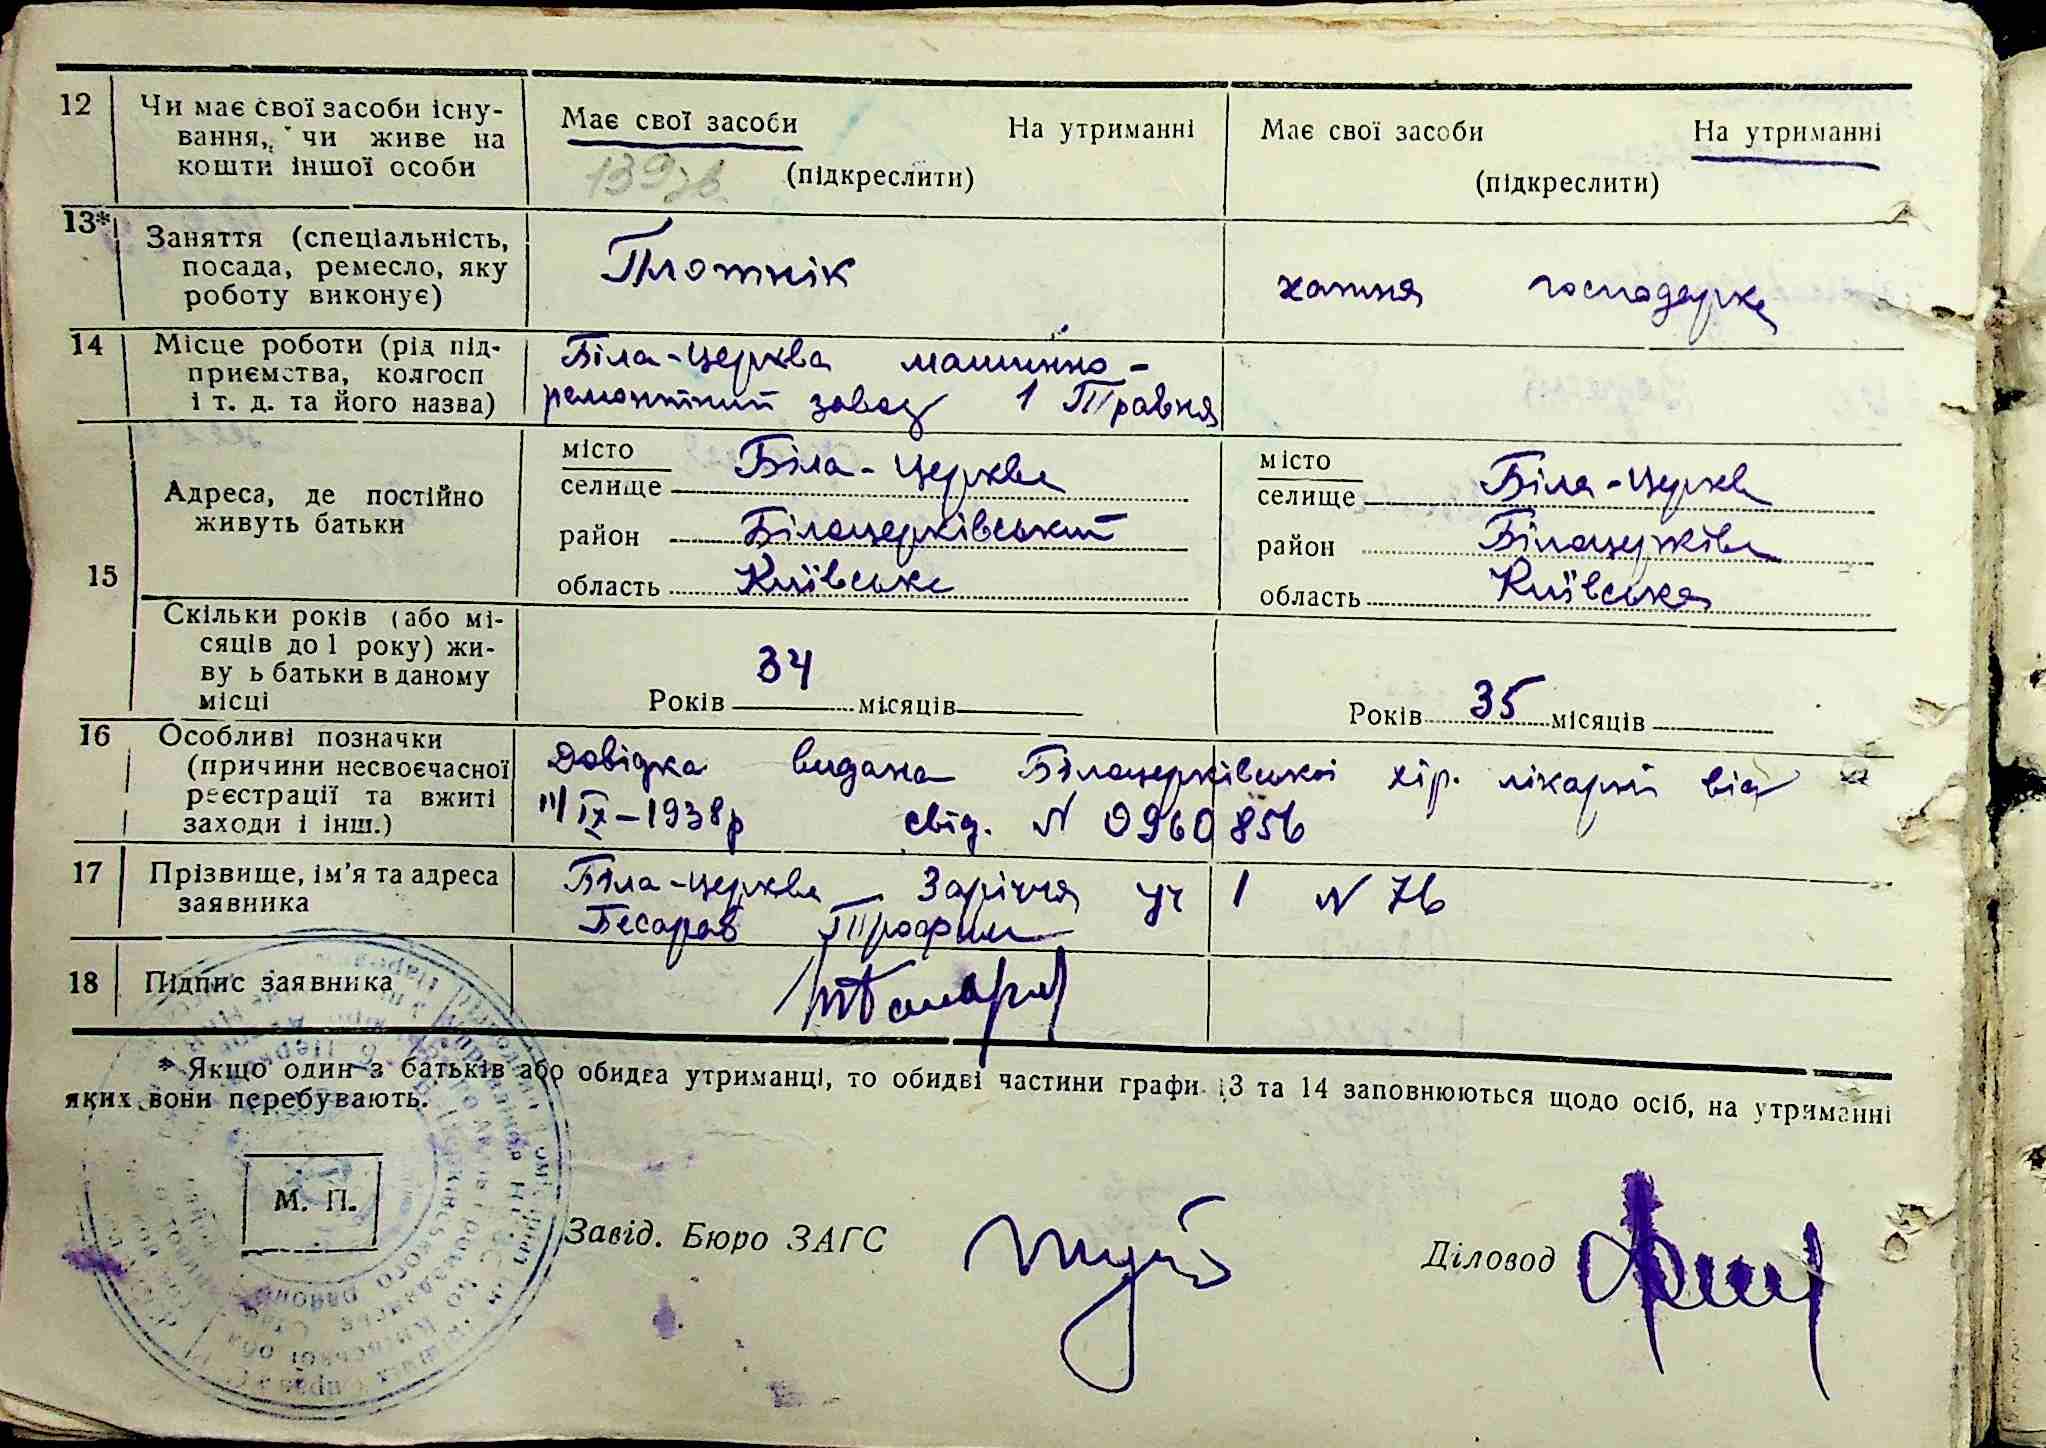 12 Чи має свої засоби існу-
вання, чи живе на
кошти іншої особи
Має свої засоби На утриманні
(підкреслити)
Має свої засоби На утриманні
(підкреслити)
13* Заняття (спеціальність,
посада, ремесло, яку
роботу виконує)
Плотнік
хатня господарка
14 Місце роботи (рід під-
приємства, колгосп
і т. д. та його назва)
Біла-Церква машинно-
ремонтний завод 1 Травня
15 Адреса, де постійно
живуть батьки
місто
селище Біла-Церква
район Білоцерківський
область Київська
місто
селище Біла-Церкв
район Білоцерків
область Київська
Скільки років (або мі-
сяців до 1 року) жи-
ву ь батьки в даному
місці
34
Років місяців
Років 35 місяців
16 Особливі позначки
(причини несвоєчасної
реєстрації та вжиті
заходи і інш.)
Довідка видана Білоцерківської хір. лікарні від
/IX-1938р свід. N 0960856
17 Прізвище, ім'я та адреса
заявника
Біла-Церква Заріччя уч 1 N 76
Бесараб Трофим
18 Підпис заявника
* Якщо один з батьків або обидва утриманці, то обидві частини графи 13 та 14 заповнюються щодо осіб, на утриманні
яких вони перебувають.
М. П.
Завід. Бюро ЗАГС
Діловод